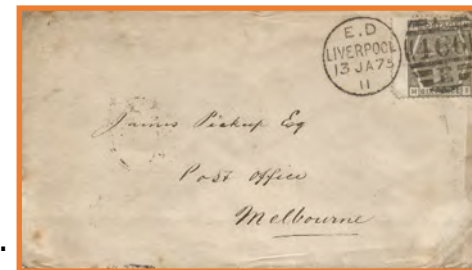 E.D
LIVERPOOL
13 JA 75
11
466
James Pickup Esq
Post Office
Melbourne
.